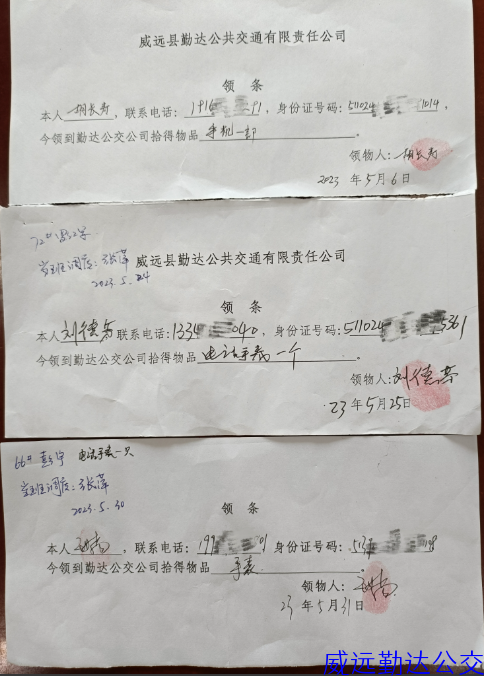 威远县勤达公共交通有限责任公司
领 条
本人胡长寿,联系电话:1916 91,身份证号码:511024 1014,
今领到勤达公交公司拾得物品手机一部。
领物人:胡长寿
2023 年5月6日
72#
当班调度:张萍
2023.5.24
威远县勤达公共交通有限责任公司
领 条
本人刘德芬联系电话:1334 040,身份证号码:511024 3361
今领到勤达公交公司拾得物品电话手表一个。
领物人:刘德芬
23年5月25日
66# 彭宇 电话手表一只
当班调度:张萍
2023.5.30
领 条
本人,联系电话:199 01 身份证号码:513
今领到勤达公交公司拾得物品 手表。
领物人:
23 年5月31日
威远勤达公交